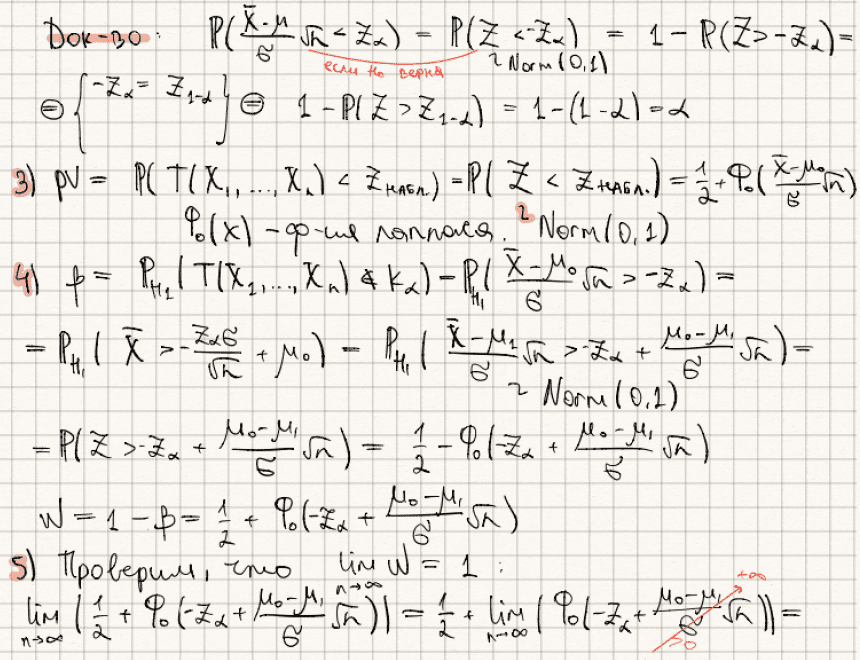 Док-во: P(X̄-μ/σ √n < Z_α) = P(Z < -Z_α) = 1 - P(Z > -Z_α) =
если H₀ верна ~ Norm(0,1)
⊜ { -Z_α = Z_{1-α} } ⊜ 1 - P(Z > Z_{1-α}) = 1 - (1-α) = α
3) pv = P(T(X₁, ..., Xₙ) < Z_набл.) = P(Z < Z_набл.) = 1/2 + Φ₀(X̄-μ₀/σ √n)
Φ₀(x) - ф-ция лапласа. ~ Norm(0,1)
4) β = P_{H₁}(T(X₁, ..., Xₙ) ∉ K_α) = P_{H₁}(X̄-μ₀/σ √n > -Z_α) =
= P_{H₁}(X̄ > -Z_α σ/√n + μ₀) = P_{H₁}(X̄-μ₁/σ √n > -Z_α + μ₀-μ₁/σ √n) =
~ Norm(0,1)
= P(Z > -Z_α + μ₀-μ₁/σ √n) = 1/2 - Φ₀(-Z_α + μ₀-μ₁/σ √n)
W = 1 - β = 1/2 + Φ₀(-Z_α + μ₀-μ₁/σ √n)
5) Проверим, что lim_{n→∞} W = 1 :
lim_{n→∞} (1/2 + Φ₀(-Z_α + μ₀-μ₁/σ √n)) = 1/2 + lim_{n→∞} (Φ₀(-Z_α + μ₀-μ₁/σ √n)) =
+∞
>0